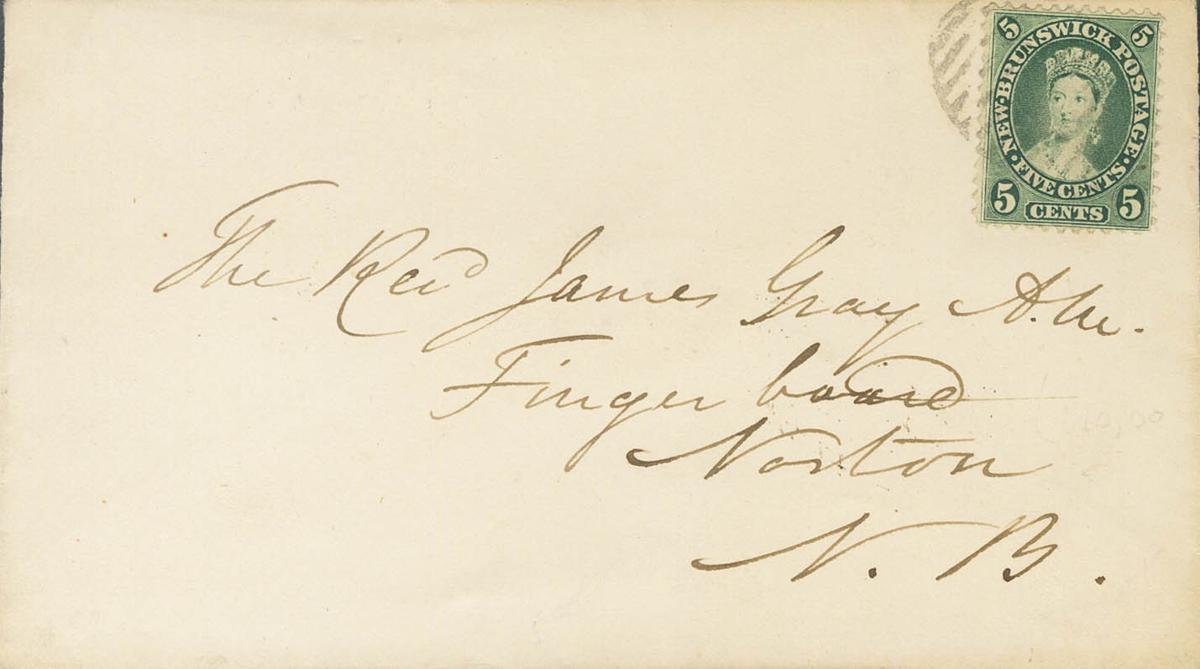 5 5
NEW·BRUNSWICK POSTAGE.
FIVE CENTS
5 CENTS 5
The Revd James Gray A.M.
Finger board
Norton
N. B.
10,00